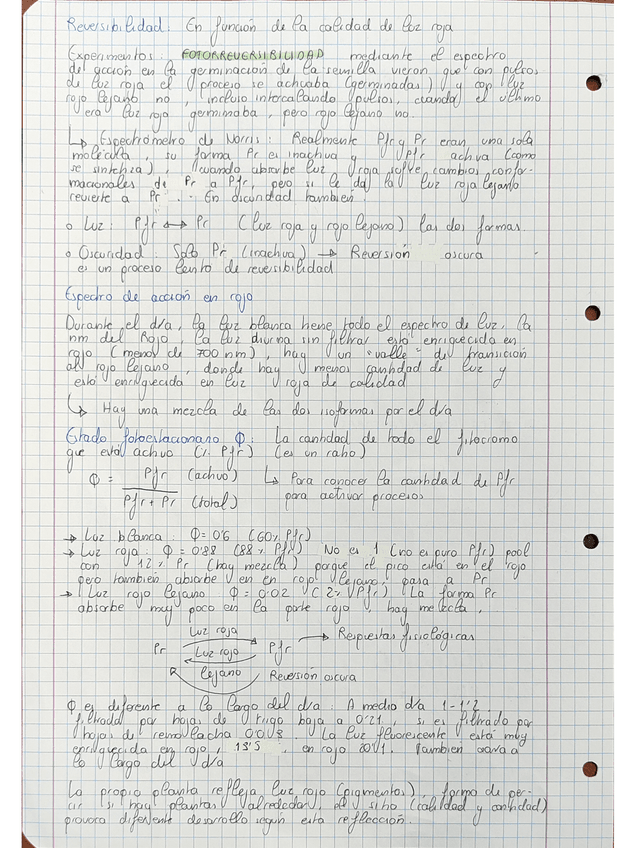 Reversibilidad: En función de la calidad de luz roja
Experimentos: FOTORREVERSIBILIDAD mediante el espectro
de acción en la germinación de la semilla vieron que con pulsos
de luz roja el proceso se activaba (germinadas) y con luz
rojo lejano no, incluso intercalando pulsos, cuando el último
era luz roja germinaba, pero rojo lejano no.
↳ Espectrómetro de Norris: Realmente Pfr y Pr eran una sola
molécula, su forma Pr es inactiva y Pfr activa (como
se sintetiza), cuando absorbe luz roja sufre cambios confor-
macionales de Pr a Pfr, pero si le da la luz roja lejano
revierte a Pr. En oscuridad también:
o Luz: Pfr ↔ Pr (luz roja y rojo lejano) las dos formas.
o Oscuridad: Solo Pr (inactiva) → Reversión oscura
es un proceso lento de reversibilidad
Espectro de acción en rojo
Durante el día, la luz blanca tiene todo el espectro de luz. La
nm del Rojo, la luz diurna sin filtrar está enriquecida en
rojo (menos de 700 nm), hay un "valle" de transición
al rojo lejano, donde hay menos cantidad de luz y
está enriquecida en luz roja de calidad
↳ Hay una mezcla de las dos isoformas por el día
Estado fotoestacionario Φ: La cantidad de todo el fitocromo
que está activo (% Pfr) (es un ratio)
Φ = Pfr (activo) / Pfr + Pr (total) ↳ Para conocer la cantidad de Pfr
para activar procesos
→ Luz blanca: Φ=0'6 (60% Pfr)
→ Luz roja: Φ = 0'88 (88% Pfr) No es 1 (no es puro Pfr) pool
con 12% Pr (hay mezcla) porque el pico está en el rojo
pero también absorbe en en rojo lejano, pasa a Pr
→ Luz rojo lejano Φ = 0'02 (2% Pfr) La forma Pr
absorbe muy poco en la parte rojo, hay mezcla.
Luz roja
Pr Luz rojo Pfr → Respuestas fisiológicas
lejano Reversión oscura
Φ es diferente a lo largo del día: A medio día 1-1'2.
filtrada por hojas de trigo baja a 0'21, si es filtrado por
hojas de remolacha 0'0 La luz fluorescente está muy
enriquecida en rojo, 13'5, en rojo Tambien varia a
lo largo del día
La propia planta refleja luz rojo (pigmentos), forma de per-
cir si hay plantas alrededor, el sitio (calidad y cantidad)
provoca diferente desarrollo según esta reflección.